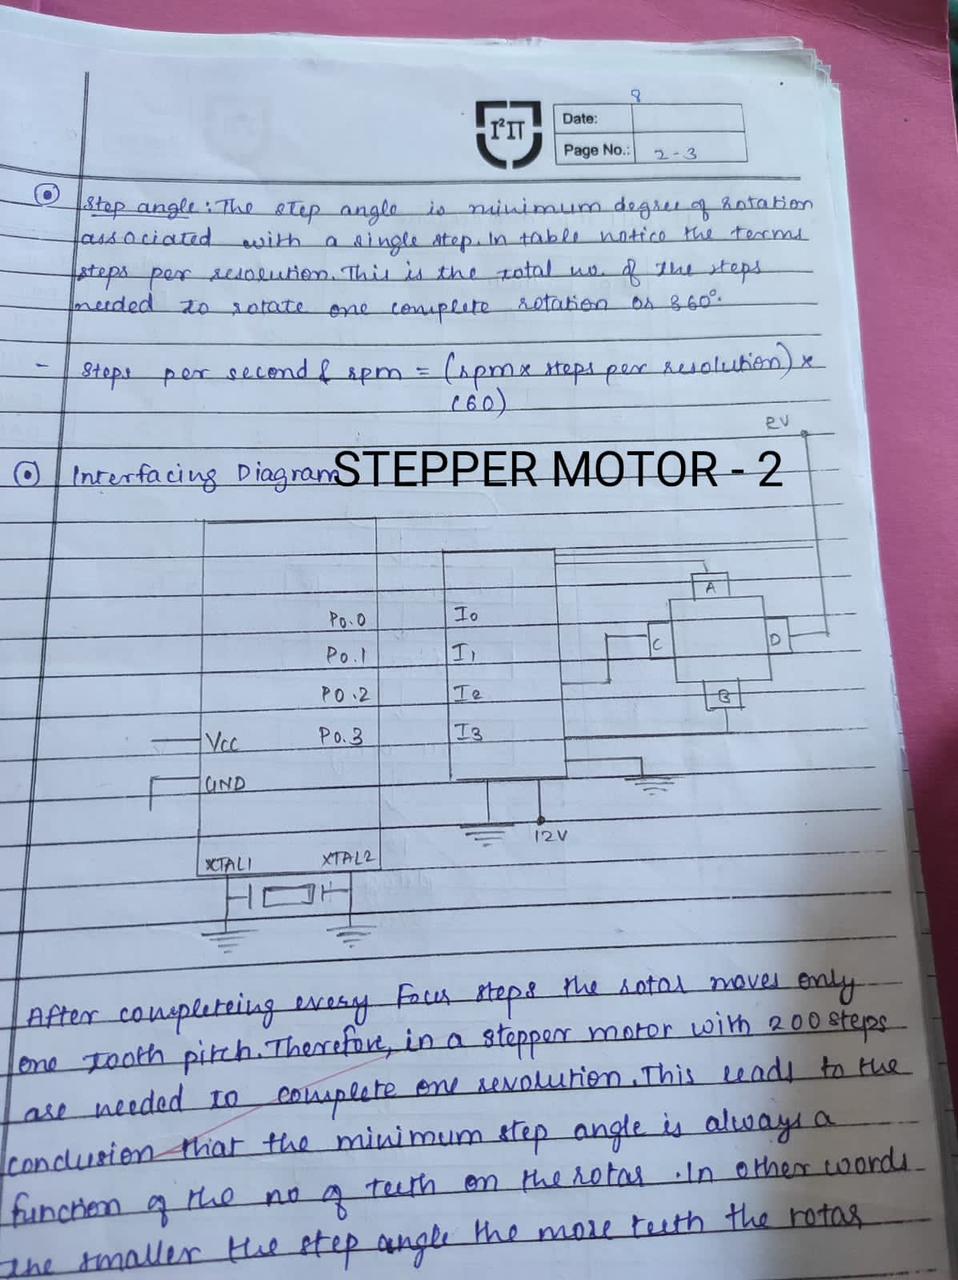 I²IT
8
Date:
Page No.: 2-3
Step angle: The step angle is minimum degree of rotation
associated with a single step. In table notice the terms
steps per resolution. This is the total no. of the steps
needed to rotate one complete rotation or 360°.
- Steps per second & rpm = (rpm x steps per resolution) x
(60)
2V
Interfacing Diagram STEPPER MOTOR - 2
A
P0.0 I0
C D
P0.1 I1
P0.2 I2 B
Vcc P0.3 I3
GND
12V
XTAL1 XTAL2
After completeing every Four steps the rotar moves only
one tooth pitch. Therefore, in a stepper motor with 200 steps
are needed to complete one revolution. This leads to the
conclusion that the minimum step angle is always a
function of the no of teeth on the rotar. In other words
the smaller the step angle the more teeth the rotar